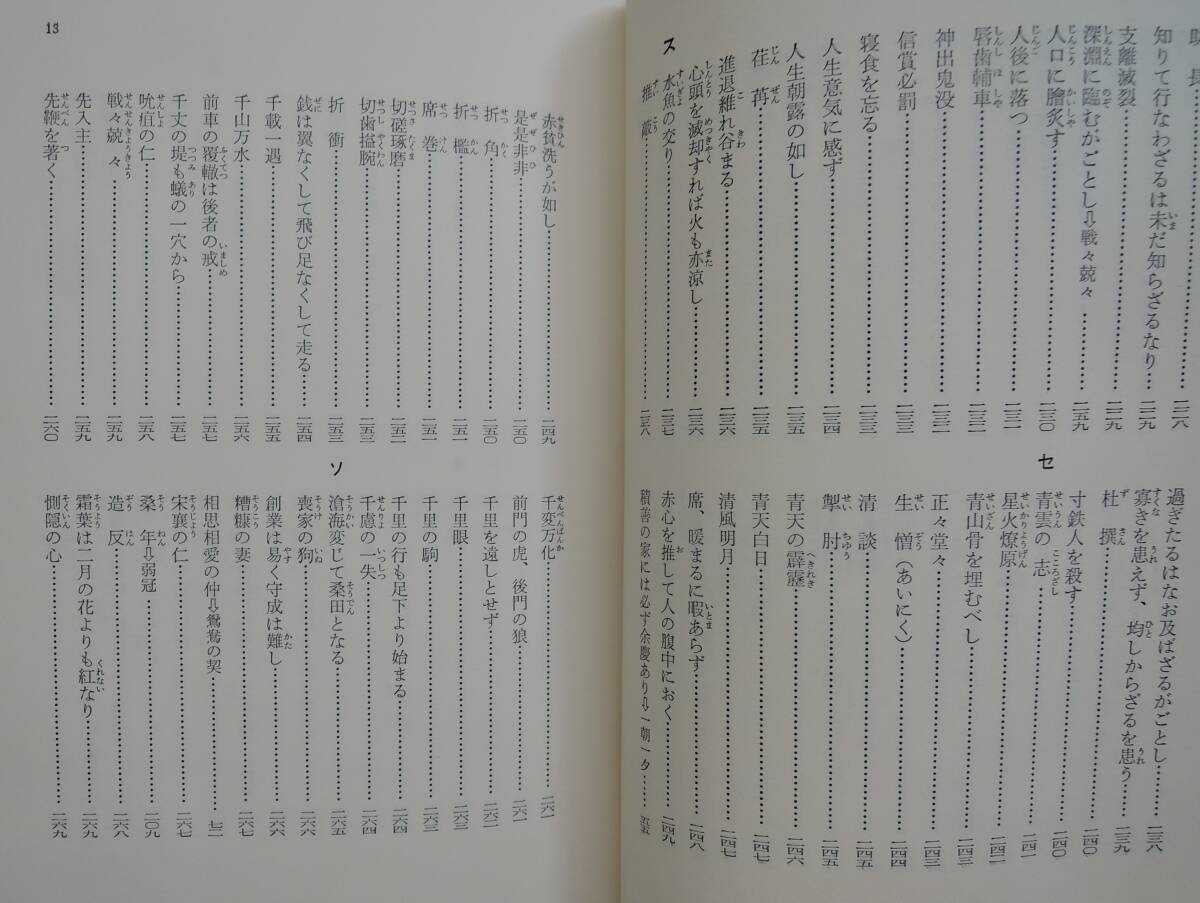 長……二二八
知りて行なわざるは未だ知らざるなり……二二九
支離滅裂……二二九
深淵に臨むがごとし⇨戦々兢々……二五九
人口に膾炙す……二三〇
人後に落つ……二三一
唇歯輔車……二三二
神出鬼没……二三二
信賞必罰……二三三
寝食を忘る……二三三
人生意気に感ず……二三四
人生朝露の如し……二三五
荏苒……二三五
進退維れ谷まる……二三六
心頭を滅却すれば火も亦涼し……二三六
ス
水魚の交り……二三七
推敲……二三八
過ぎたるはなお及ばざるがごとし……二三八
寡きを患えず、均しからざるを患う……二三九
杜撰……二四〇
寸鉄人を殺す……二四〇
セ
青雲の志……二四一
星火燎原……二四二
青山骨を埋むべし……二四三
正々堂々……二四三
生憎(あいにく)……二四四
清談……二四五
掣肘……二四五
青天の霹靂……二四六
青天白日……二四七
清風明月……二四七
席、暖まるに暇あらず……二四八
赤心を推して人の腹中におく……二四九
積善の家には必ず余慶あり⇨一朝一夕……五五
13
赤貧洗うが如し……二四九
是是非非……二五〇
折角……二五〇
折檻……二五一
席巻……二五一
切磋琢磨……二五二
切歯搤腕……二五三
折衝……二五三
銭は翼なくして飛び足なくして走る……二五四
千載一遇……二五五
千山万水……二五六
前車の覆轍は後者の戒……二五七
千丈の堤も蟻の一穴から……二五七
吮疽の仁……二五八
戦々兢々……二五九
先入主……二五九
先鞭を著く……二六〇
千変万化……二六一
前門の虎、後門の狼……二六一
千里を遠しとせず……二六二
千里眼……二六三
千里の駒……二六三
千里の行も足下より始まる……二六四
千慮の一失……二六四
ソ
滄海変じて桑田となる……二六五
喪家の狗……二六六
創業は易く守成は難し……二六六
糟糠の妻……二六七
相思相愛の仲⇨鴛鴦の契……七二
宋襄の仁……二六七
桑年⇨弱冠……二〇九
造反……二六八
霜葉は二月の花よりも紅なり……二六九
惻隠の心……二六九